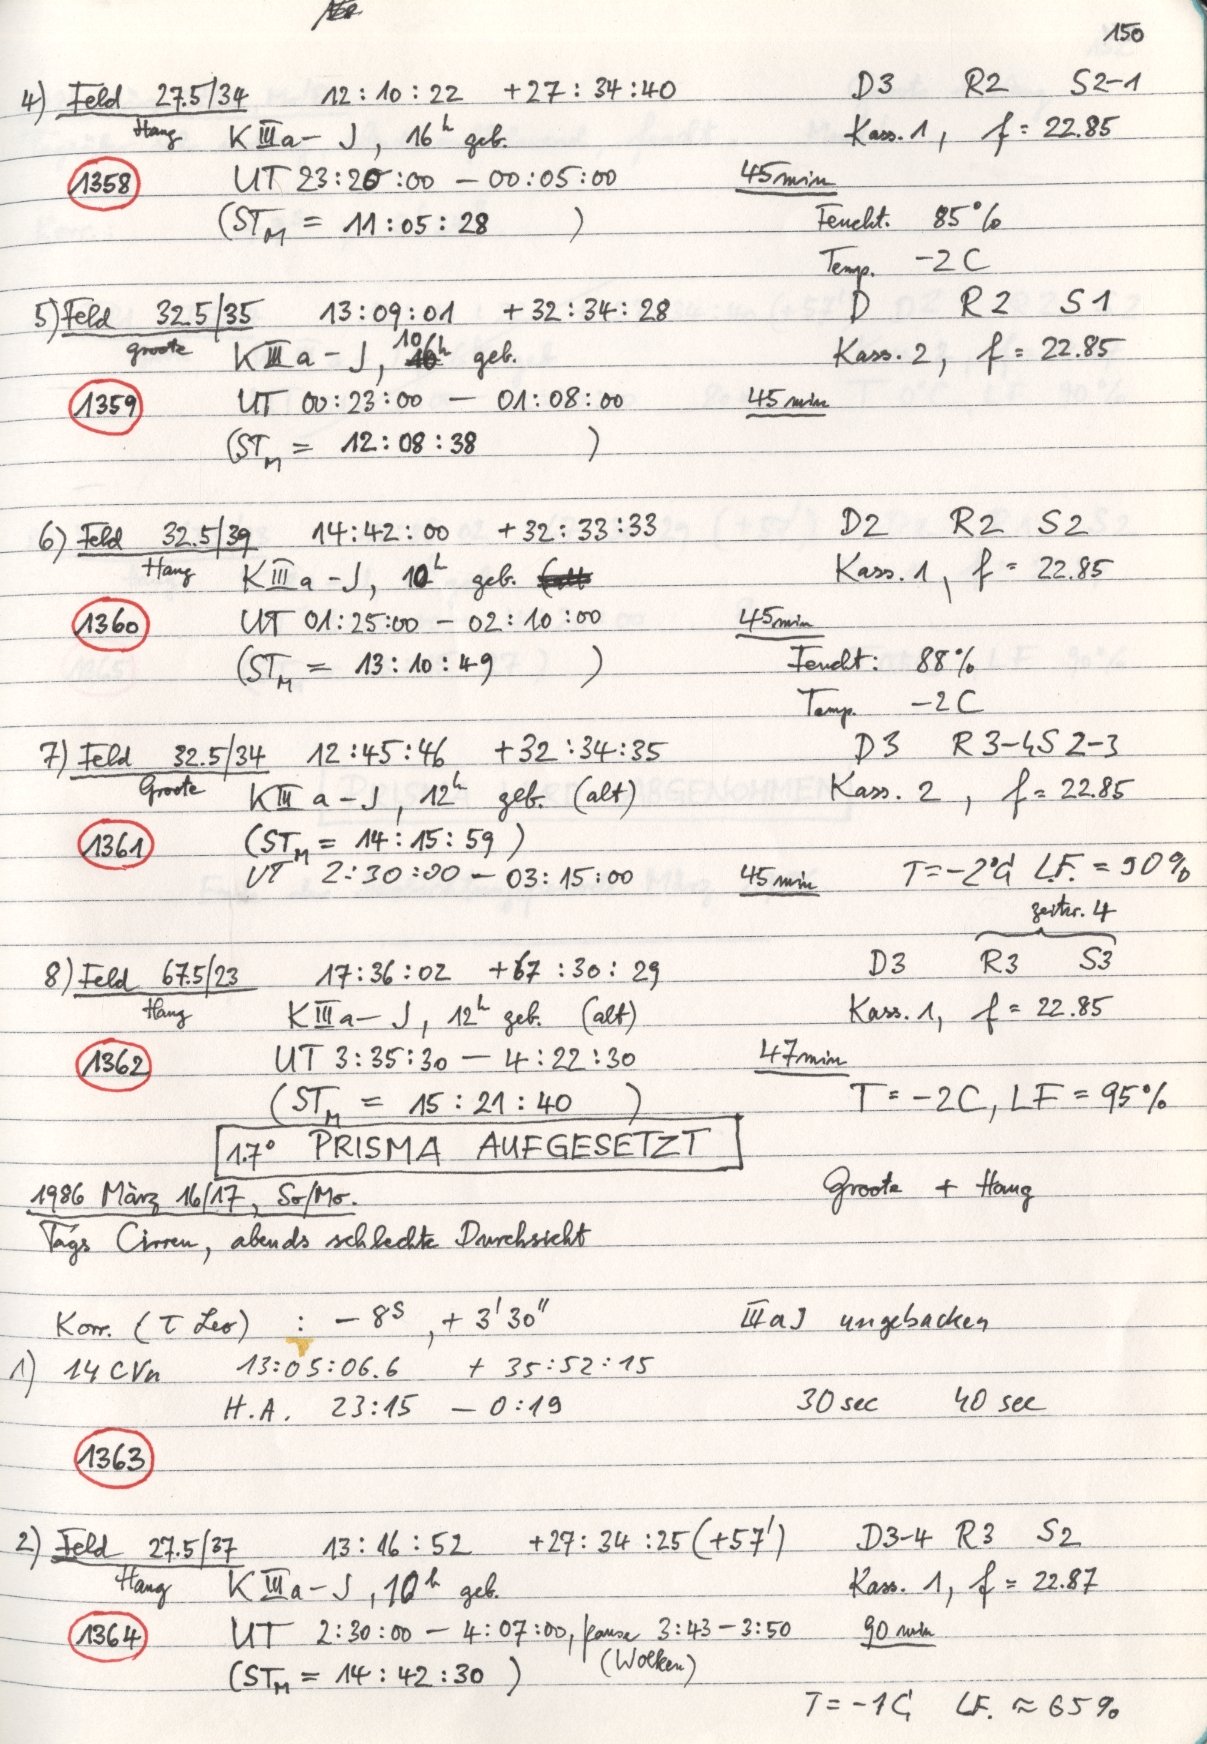 150
4) Feld 27.5/34 12:10:22 +27:34:40 D3 R2 S2-1
Hang K III a-J, 16h geb. Kass. 1, f = 22.85
1358 UT 23:20:00 — 00:05:00 45 min
(STM = 11:05:28 ) Feucht. 85%
Temp. -2 C
5) Feld 32.5/35 13:09:01 +32:34:28 D R2 S1
groote K III a-J, 10h geb. Kass. 2, f = 22.85
1359 UT 00:23:00 — 01:08:00 45 min
(STM = 12:08:38 )
6) Feld 32.5/39 14:42:00 +32:33:33 D2 R2 S2
Hang K III a-J, 10h geb. Kass. 1, f = 22.85
1360 UT 01:25:00 — 02:10:00 45 min
(STM = 13:10:49 ) Feucht: 88%
Temp. -2 C
7) Feld 32.5/34 12:45:46 +32:34:35 D3 R3-4 S2-3
Groote K III a-J, 12h geb. (alt) Kass. 2, f = 22.85
1361 (STM = 14:15:59)
UT 2:30:00 — 03:15:00 45 min T=-2°C L.F. = 90%
zeitw. 4
8) Feld 67.5/23 17:36:02 +67:30:29 D3 R3 S3
Hang K III a-J, 12h geb. (alt) Kass. 1, f = 22.85
1362 UT 3:35:30 — 4:22:30 47 min
(STM = 15:21:40 ) T = -2C, LF = 95%
1.7° PRISMA AUFGESETZT
1986 März 16/17, So/Mo. Groote + Hang
Tags Cirren, abends schlechte Durchsicht
Korr. (τ Leo) : -8s, +3'30" III a J ungebacken
1) 14 CVn 13:05:06.6 + 35:52:15
H.A. 23:15 — 0:19 30 sec 40 sec
1363
2) Feld 27.5/37 13:16:52 +27:34:25 (+57') D3-4 R3 S2
Hang K III a-J, 10h geb. Kass. 1, f = 22.87
1364 UT 2:30:00 — 4:07:00, Pause 3:43-3:50 90 min
(STM = 14:42:30 ) (Wolken)
T = -1 C, LF. ≈ 65%